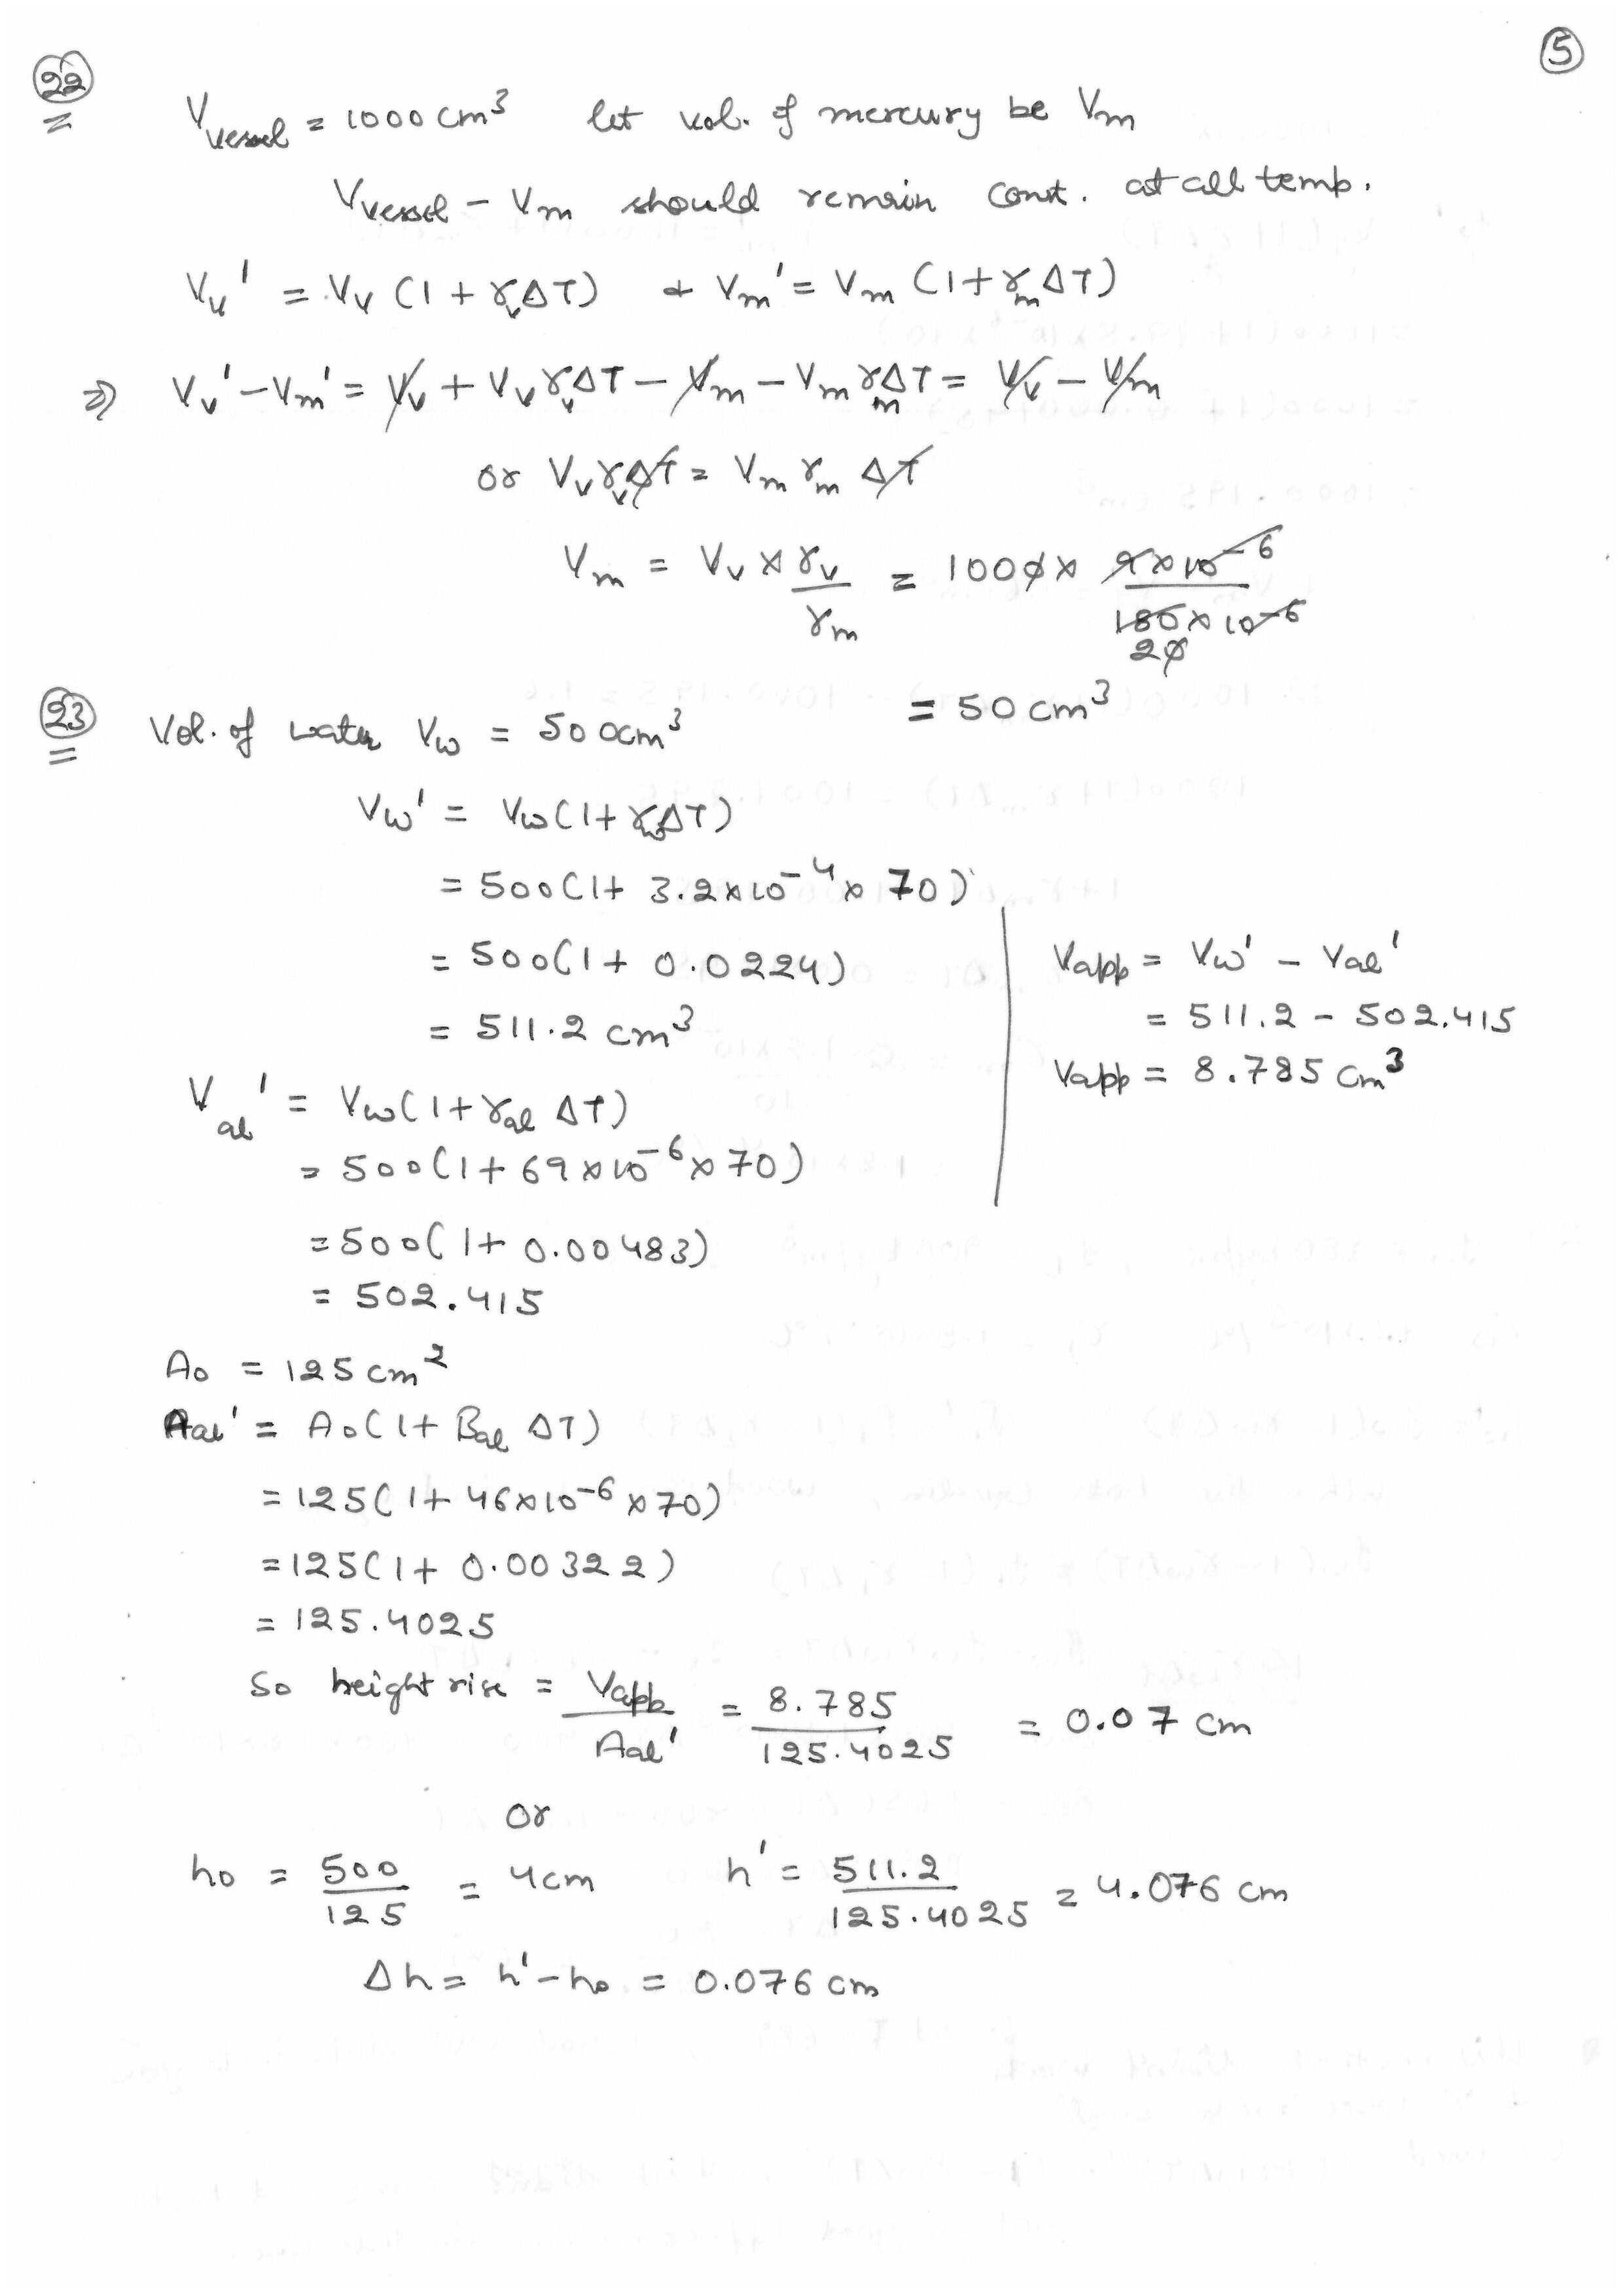 5
22
V_vessel = 1000 cm³ let vol. of mercury be Vm
V_vessel - Vm should remain const. at all temp.
Vv' = Vv (1 + γvΔT) & Vm' = Vm (1 + γmΔT)
⇒ Vv' - Vm' = Vv + VvγvΔT - Vm - VmγmΔT = Vv - Vm
or VvγvΔT = Vm γm ΔT
Vm = Vv × γv/γm = 1000 × 9×10⁻⁶/180×10⁻⁶
20
= 50 cm³
23
Vol. of water Vw = 500cm³
Vw' = Vw(1+γwΔT)
= 500(1+ 3.2×10⁻⁴ × 70)
= 500(1+ 0.0224)
= 511.2 cm³
Val' = Vw(1+γal ΔT)
= 500(1+69×10⁻⁶×70)
= 500(1+ 0.00483)
= 502.415
Vapp = Vw' - Val'
= 511.2 - 502.415
Vapp = 8.785 cm³
A0 = 125 cm²
Aal' = A0(1+ Bal ΔT)
= 125(1+46×10⁻⁶×70)
= 125(1+ 0.00322)
= 125.4025
So height rise = Vapp/Aal' = 8.785/125.4025 = 0.07 cm
or
h0 = 500/125 = 4cm h' = 511.2/125.4025 = 4.076 cm
Δh = h' - h0 = 0.076 cm